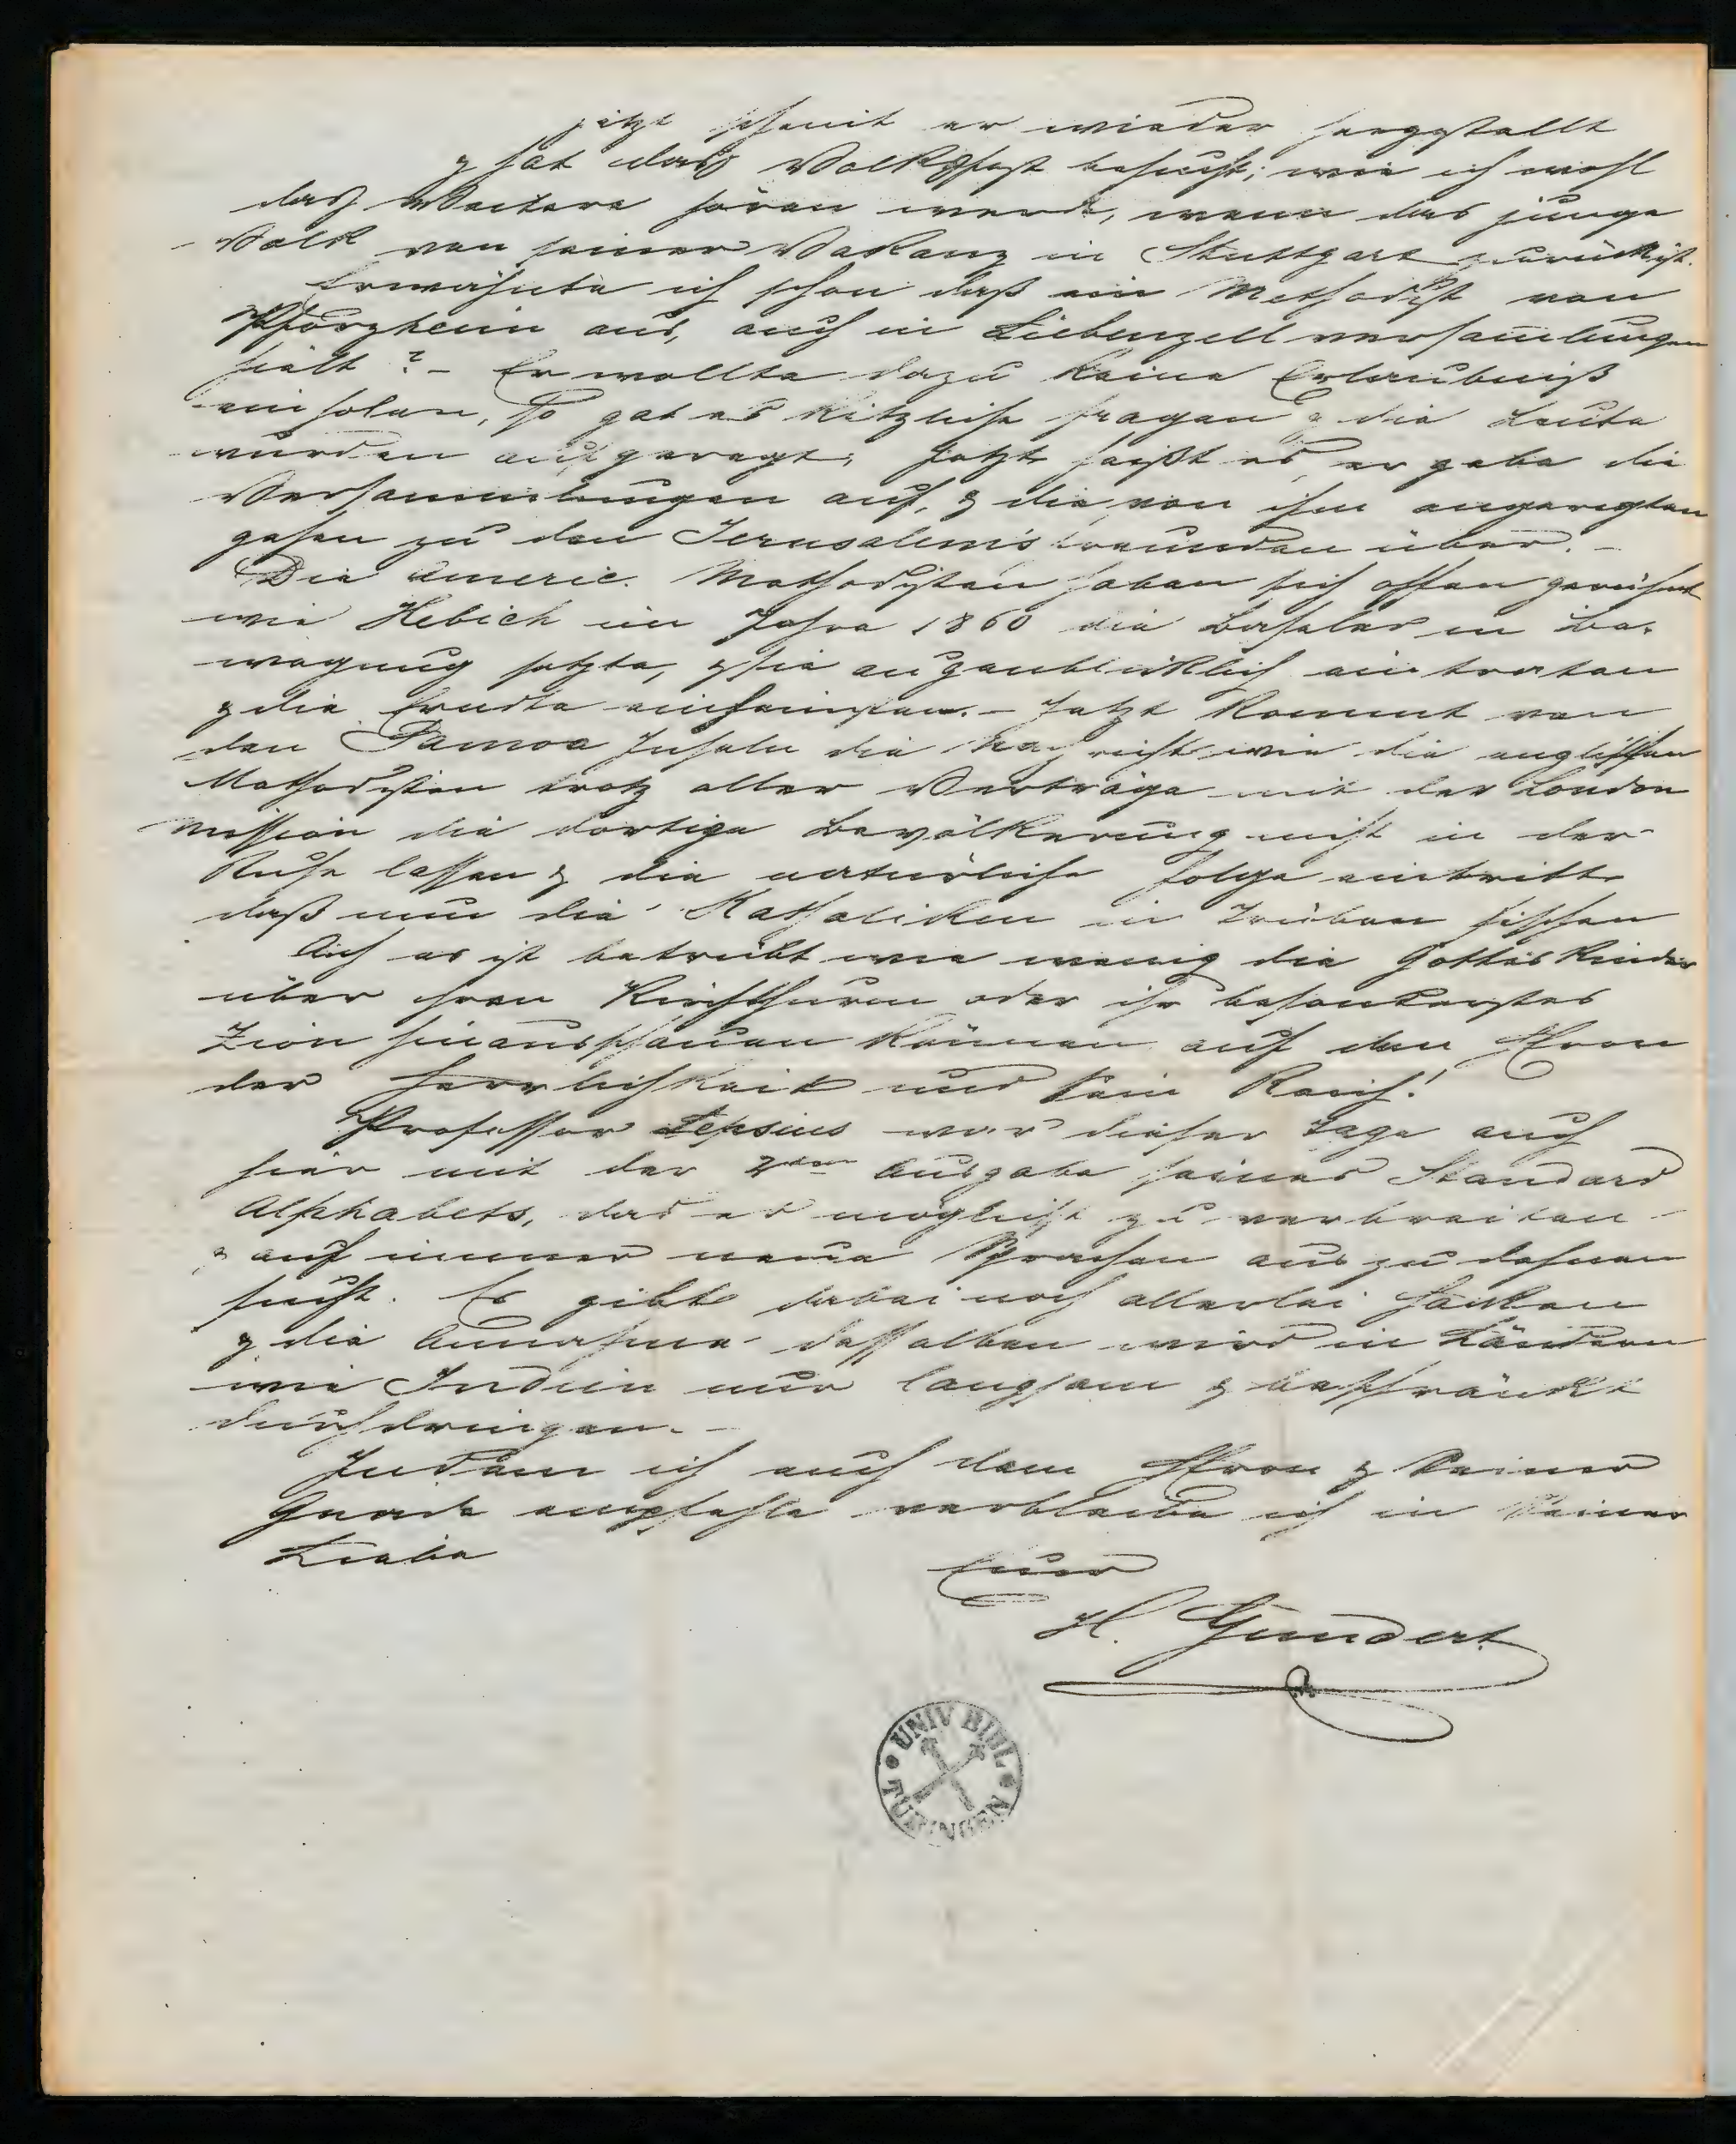 jetzt scheint er wieder hergestellt
& hat das Volksfest besucht; wie ich wohl
das Weitere hören werde, wenn das junge
Volk von seiner Vakanz in Stuttgart zurück ist.
Erwähnte ich schon daß ein Methodist von
Pforzheim aus, auch in Liebenzell versamlungen
hält? - Er wollte dazu keine Erlaubniß
einholen, so gab es kitzliche fragen & die Leute
wurden aufgeregt; jetzt heißt es er gebe die
Versammlungen auf, & die von ihm angeregten
gehen zu den Jerusalemsfreunden über. -
Die americ. Methodisten haben sich offen gerühmt
wie Hebich im Jahre 1860 die Baseler in Be-
wegung setzte, & sie augenblicklich eintraten
& die Erndte einheimsten. - Jetzt kommt von
den Samoa Inseln die Nachricht wie die englischen
Methodisten trotz aller Verträge mit der London
Mission die dortige Bevölkerung nicht in der
Ruhe lassen & die natürliche folge eintritt
daß nun die Katholiken im Trüben fischen
Ach es ist betrübt wie wenig die Gottes Kinder
über ihren Kirchthurm oder ihr besonderstes
Zion hinausschauen können auf den Herrn
der Herrlichkeit und Sein Reich!
Professor Lepsius war dieser Tage auch
hier mit der 2ten Ausgabe seines Standard
Alphabets, das er möglichst zu verbreiten
& auf immer neue Sprachen auszudehnen
sucht. Es gibt dabei noch allerlei Haken
& die Annahme desselben wird in Ländern
wie Indien nur langsam & beschränkt
durchdringen. -
Indem ich euch dem Herrn & Seiner
Gnade empfehle verbleibe ich in Seiner
Liebe
Euer
H. Gundert
UNIV BIBL
TÜBINGEN